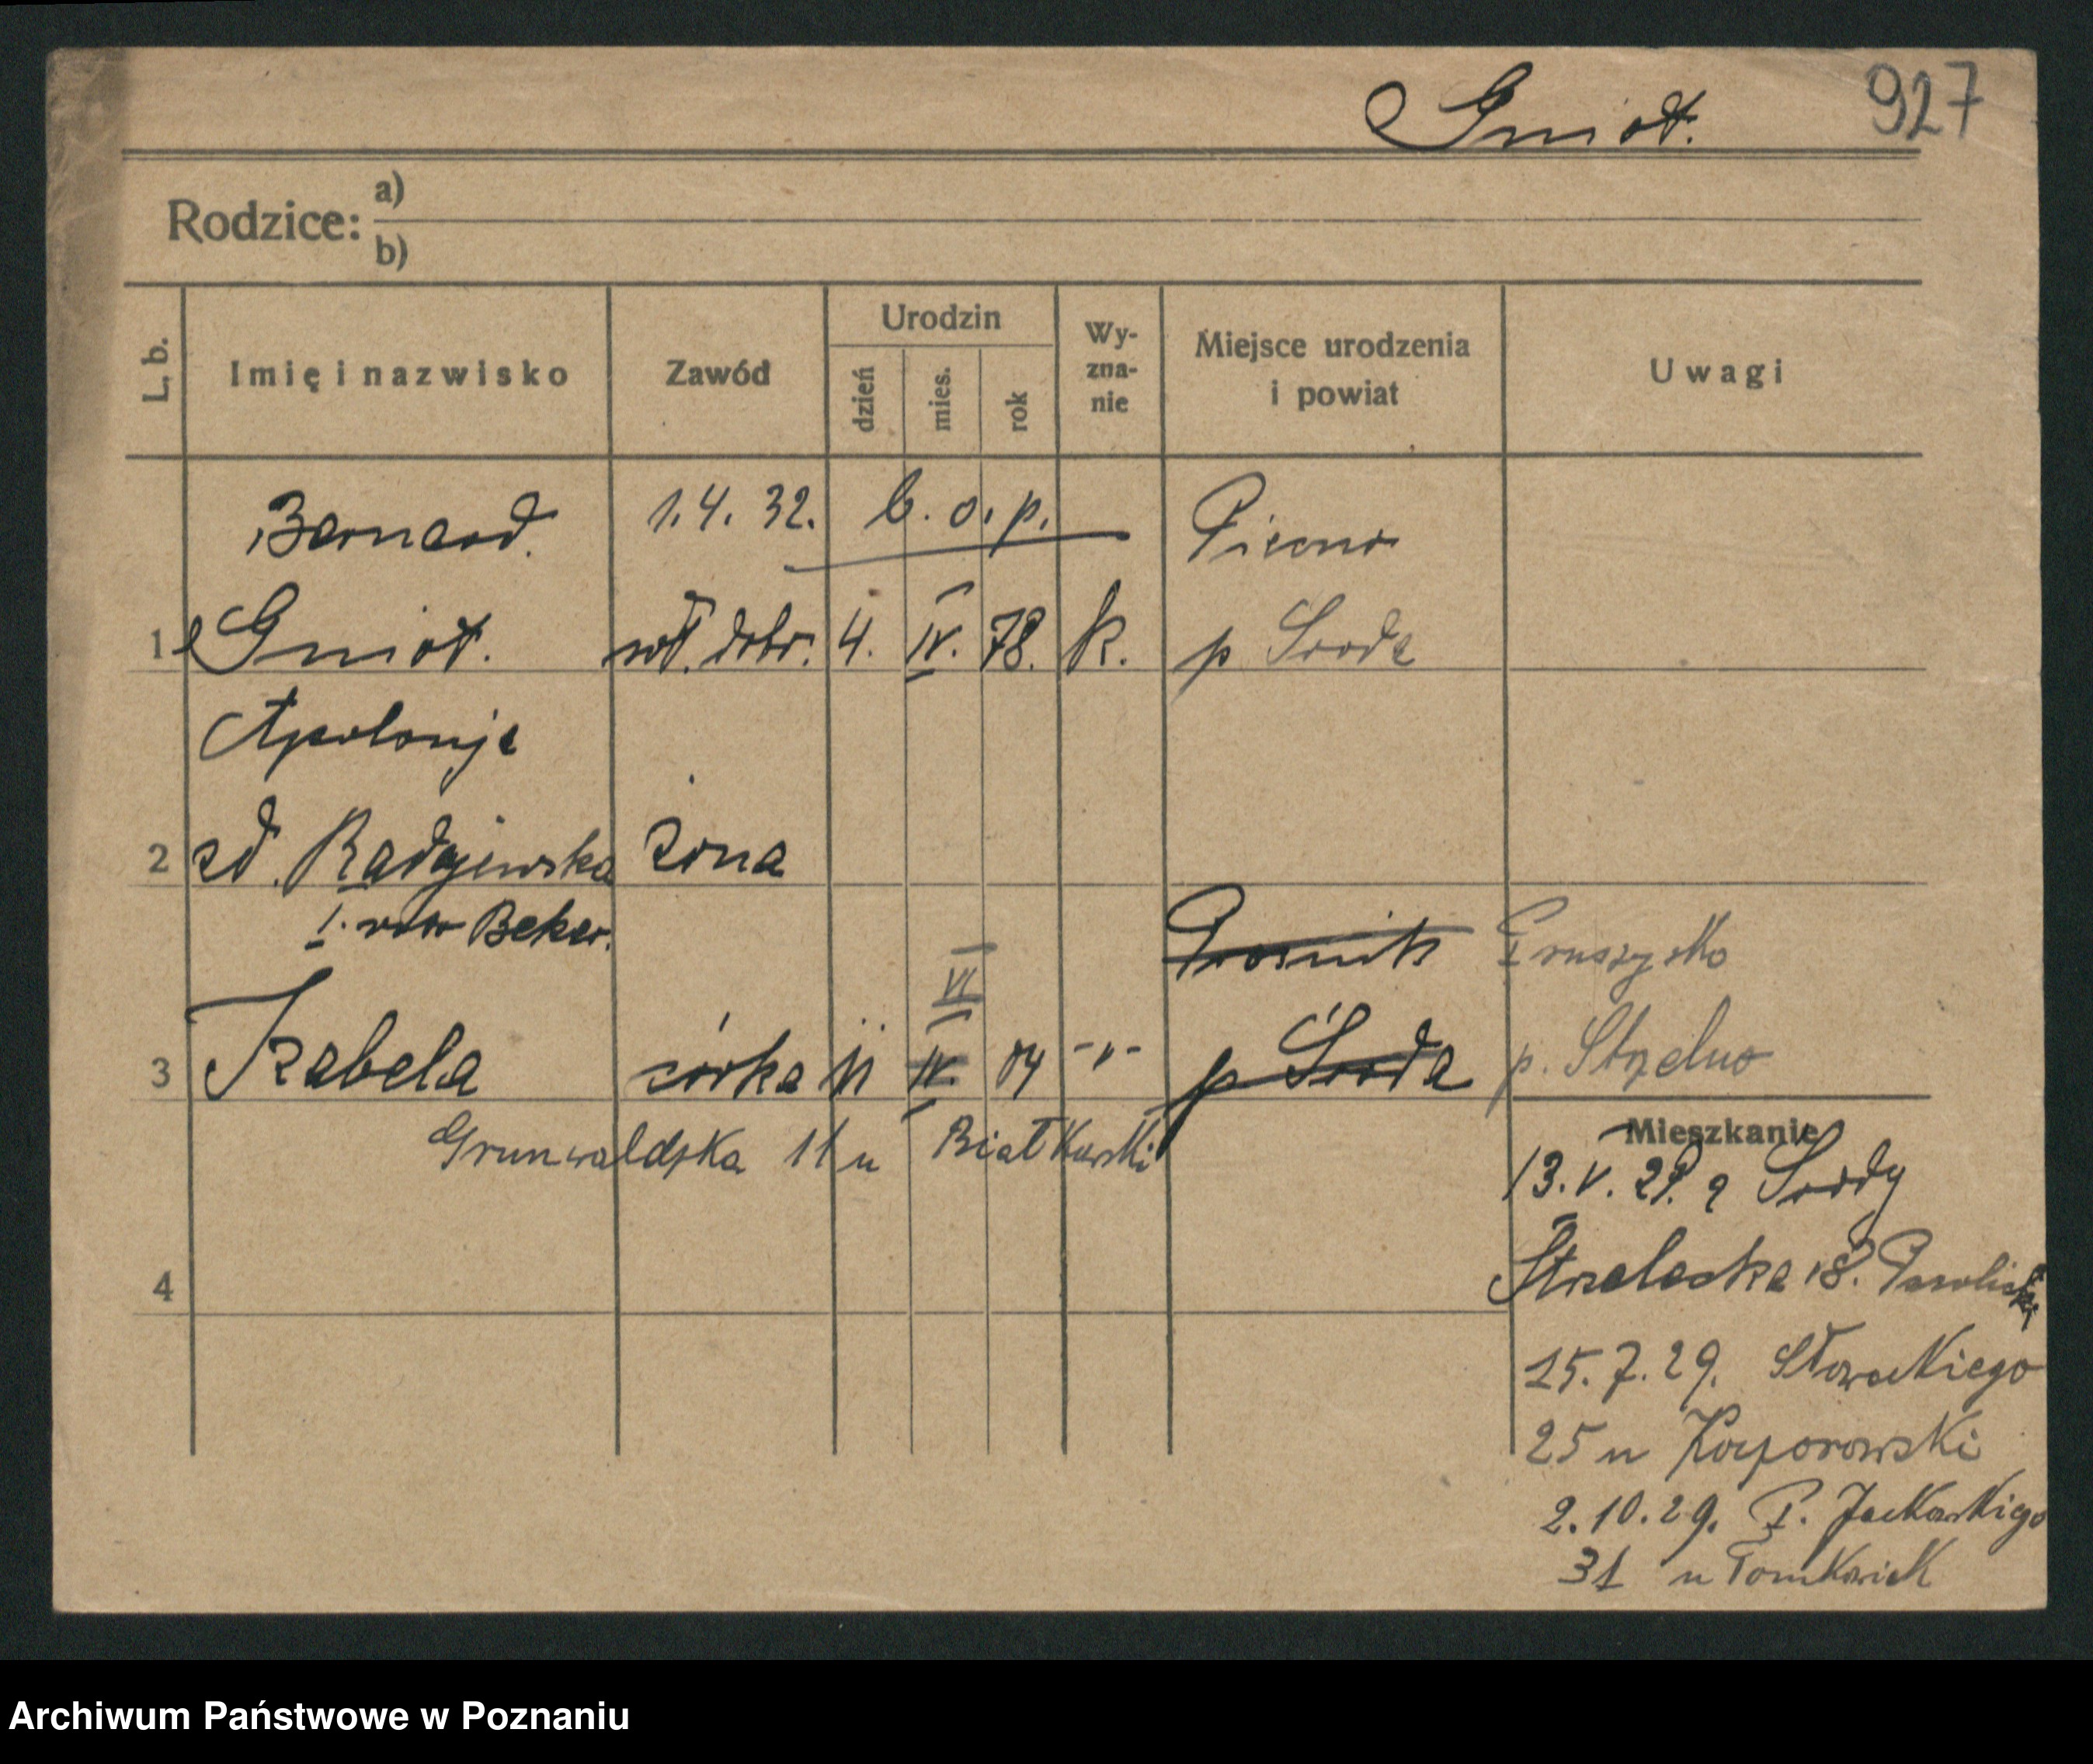 Gniot. 927
Rodzice: a)
b)
L. b. Imię i nazwisko Zawód Urodzin dzień mies. rok Wy-zna-nie Miejsce urodzenia i powiat Uwagi
Bernard. 1.4.32. b.o.p.
1 Gniot. wł. dobr. 4. IV. 78. k. p Środa
Apolonja
2 zd. Radajewska żona
I. voto Beker.
VI
3 Izabela córka 11 IV 04 -"- p Środa p. Strzelno
Grunwaldska 11 u Białkowski
Mieszkanie
13.V.29. z Środy
4 Strzelecka 18.
15.7.29. Słowackiego
25 u
2.10.29. P. Jackowskiego
31 u Tomkowiak
Archiwum Państwowe w Poznaniu